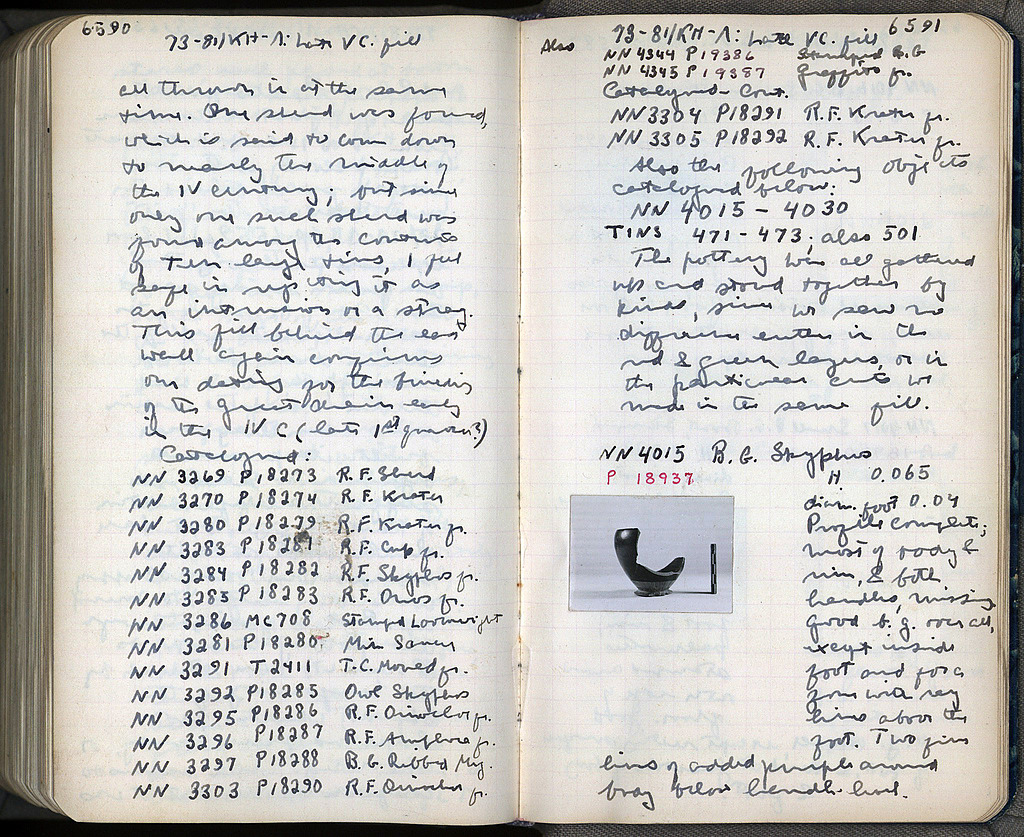 6590
73-81/KH-Λ: Late VC. fill
all thrown in at the same
time. One sherd was found,
which is said to come down
to nearly the middle of
the IV century; but since
only one such sherd was
found among the contents
of ten large tins, I feel
safe in rejecting it as
an intrusion or a stray.
This fill behind the east
wall again confirms
our dating for the
of the Great Drain early
in the IV C (late 1st quarter?)
Catalogued:
NN 3269 P18273 R.F. Sherd
NN 3270 P18274 R.F. Krater
NN 3280 P18279 R.F. Krater fr.
NN 3283 P18281 R.F. Cup fr.
NN 3284 P18282 R.F. Skyphos fr.
NN 3285 P18283 R.F. Oinos fr.
NN 3286 MC708 Stamped Loomweight
NN 3281 P18280 Min. Saucer
NN 3291 T2411 T.C. Mould fr.
NN 3292 P18285 Owl Skyphos
NN 3295 P18286 R.F. Oinochoe fr.
NN 3296 P18287 R.F. Amphora fr.
NN 3297 P18288 B.G. Ribbed Mug.
NN 3303 P18290 R.F. Oinochoe fr.
6591
73-81/KH-Λ: Late VC. fill
Also NN 4344 P19386 Stamped B.G
NN 4345 P19387 Graffito fr.
Catalogued Cont.
NN3304 P18291 R.F. Krater fr.
NN 3305 P18292 R.F. Krater fr.
Also the following objects
catalogued below:
NN 4015 - 4030
TINS 471-473, also 501
The pottery was all gathered
up and stored together by
kinds, since we saw no
difference either in the
red & green layers, or in
the particular cuts we
made in the same fill.
NN 4015 B.G. Skyphos
P 18937 H 0.065
diam. foot 0.04
Profile complete;
most of body &
rim, & both
handles, missing
good b.g. over all,
except inside
foot and for a
zone with ray
lines above the
foot. Two fine
lines of added purple around
body below handle-level.